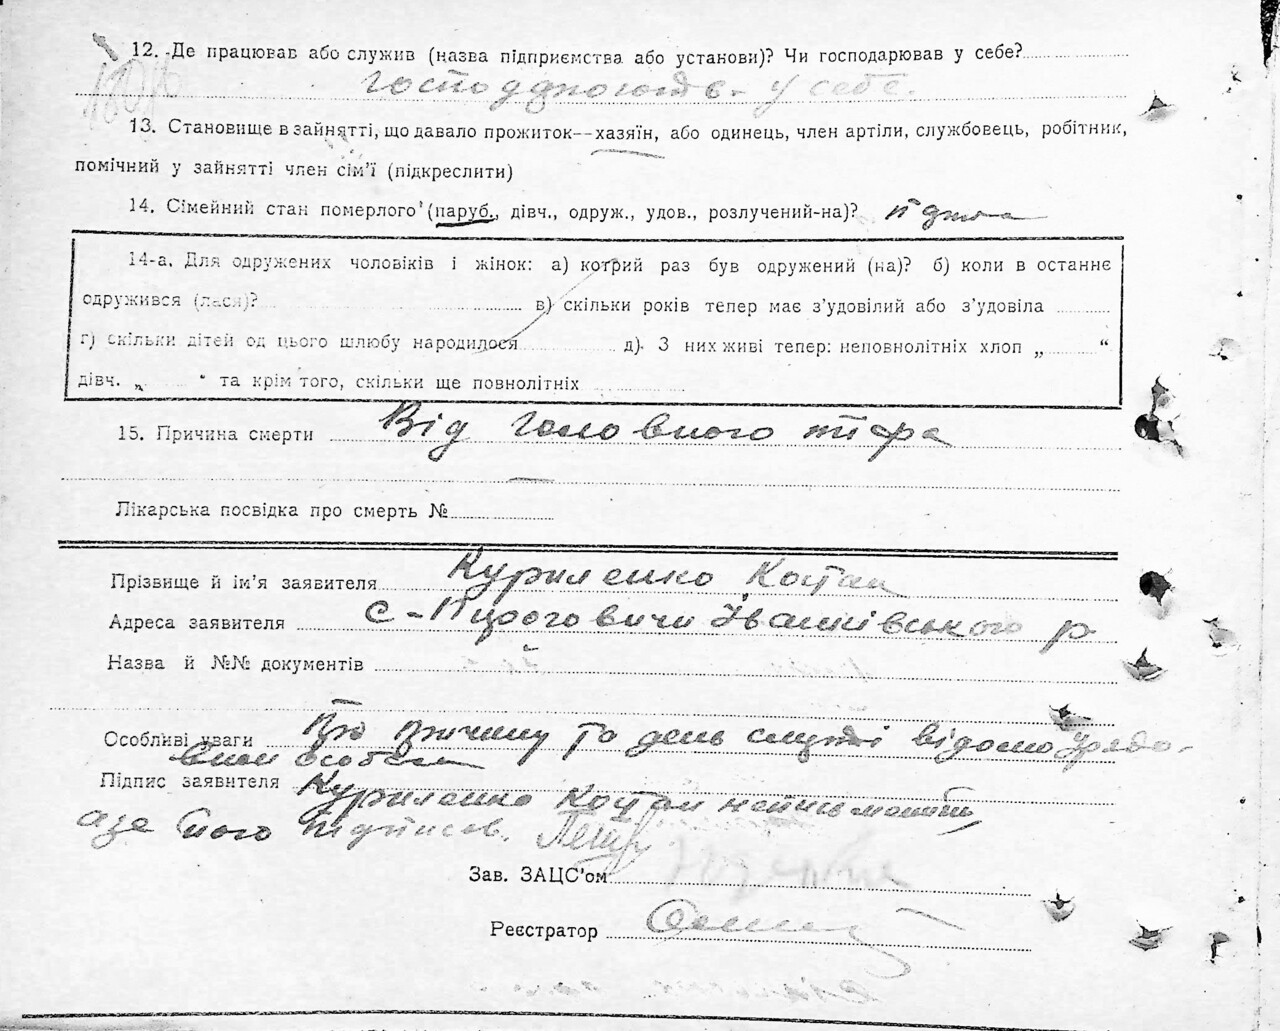 12. Де працював або служив (назва підприємства або установи)? Чи господарював у себе?
у себе.
13. Становище в зайнятті, що давало прожиток--хазяїн, або одинець, член артіли, службовець, робітник,
помічний у зайнятті член сім'ї (підкреслити)
14. Сімейний стан померлого (паруб., дівч., одруж., удов., розлучений-на)?
14-а. Для одружених чоловіків і жінок: а) котрий раз був одружений (на)? б) коли в останнє
одружився (лася)? в) скільки років тепер має з'удовілий або з'удовіла
г) скільки дітей од цього шлюбу народилося д). З них живі тепер: неповнолітніх хлоп „ “
дівч. „ “ та крім того, скільки ще повнолітніх
15. Причина смерти Від головного тифа
Лікарська посвідка про смерть №
Прізвище й ім'я заявителя Куриленко Костан
Адреса заявителя с- Іванківського р
Назва й №№ документів
Особливі уваги Про причину та день смерті відомо урядо-
вим особам
Підпис заявителя Куриленко Костан неписьменний
а за його підписав.
Зав. ЗАЦС'ом
Реєстратор